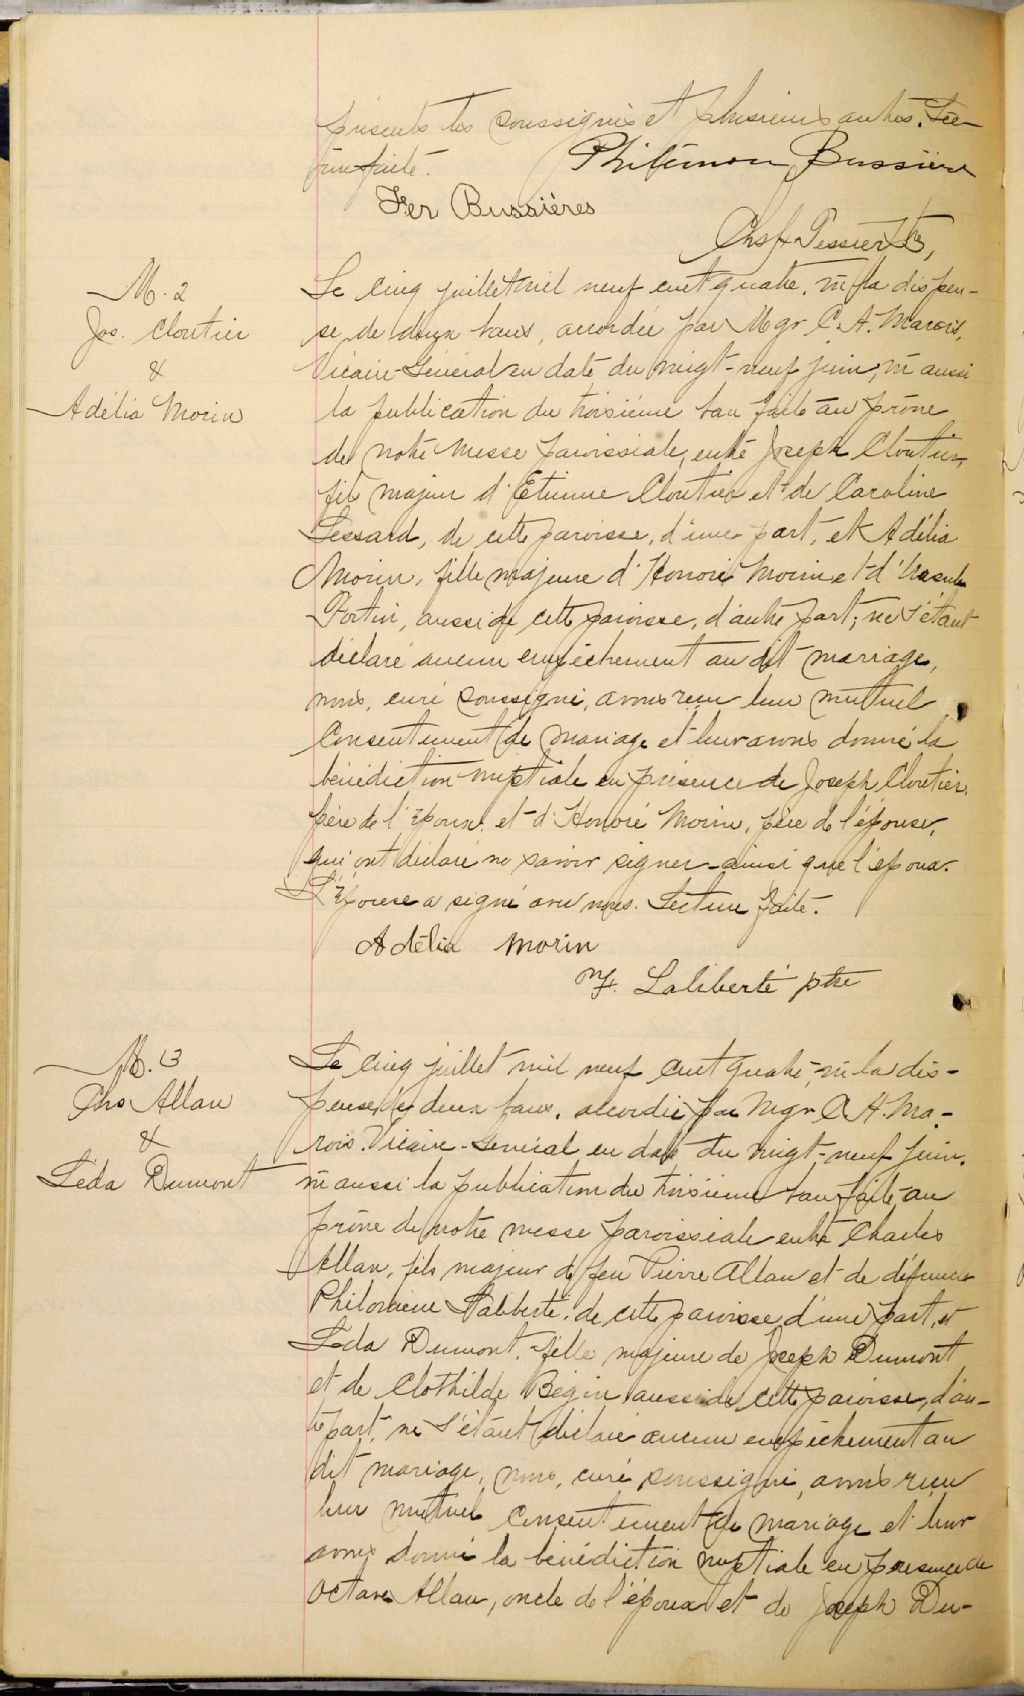 présents les soussignés et plusieurs autres. Lec-
ture faite. Philémon Bussière
Fer Bussières
Chs Tessier
M. 2
Jos. Cloutier
&
Adélia Morin
Le cinq juillet mil neuf cent quatre, vu la dispen-
se de deux bans, accordée par Mgr C. A. Marois,
Vicaire-Général en date du vingt-neuf juin, vu aussi
la publication du troisième ban faite au prône
de notre messe paroissiale, entre Joseph Cloutier,
fils majeur d'Etienne Cloutier et de Caroline
Lessard, de cette paroisse, d'une part, et Adélia
Morin, fille majeure d'Honoré Morin et d'Ursule
Fortin, aussi de cette paroisse, d'autre part; ne s'étant
déclaré aucun empêchement au dit mariage,
nous, curé soussigné, avons reçu leur mutuel
consentement de mariage et leur avons donné la
bénédiction nuptiale en présence de Joseph Cloutier,
père de l'époux, et d'Honoré Morin, père de l'épouse,
qui ont déclaré ne savoir signer ainsi que l'époux.
L'épouse a signé avec nous. Lecture faite.
Adélia Morin
Laliberté ptre
M. 3
Chs Allan
&
Léda Dumont
Le cinq juillet mil neuf cent quatre, vu la dis-
pense de deux bans, accordée par Mgr C. A. Ma-
rois Vicaire-Général en date du vingt-neuf juin,
vu aussi la publication du troisième ban faite au
prône de notre messe paroissiale entre Charles
Allan, fils majeur de feu Pierre Allan et de défunte
Philomène Labberté, de cette paroisse d'une part, et
Léda Dumont, fille majeure de Joseph Dumont
et de Clothilde Bégin aussi de cette paroisse, d'au-
tre part, ne s'étant déclaré aucun empêchement au
dit mariage, nous, curé soussigné, avons reçu
leur mutuel consentement de mariage et leur
avons donné la bénédiction nuptiale en présence de
Octave Allan, oncle de l'époux et de Joseph Du-